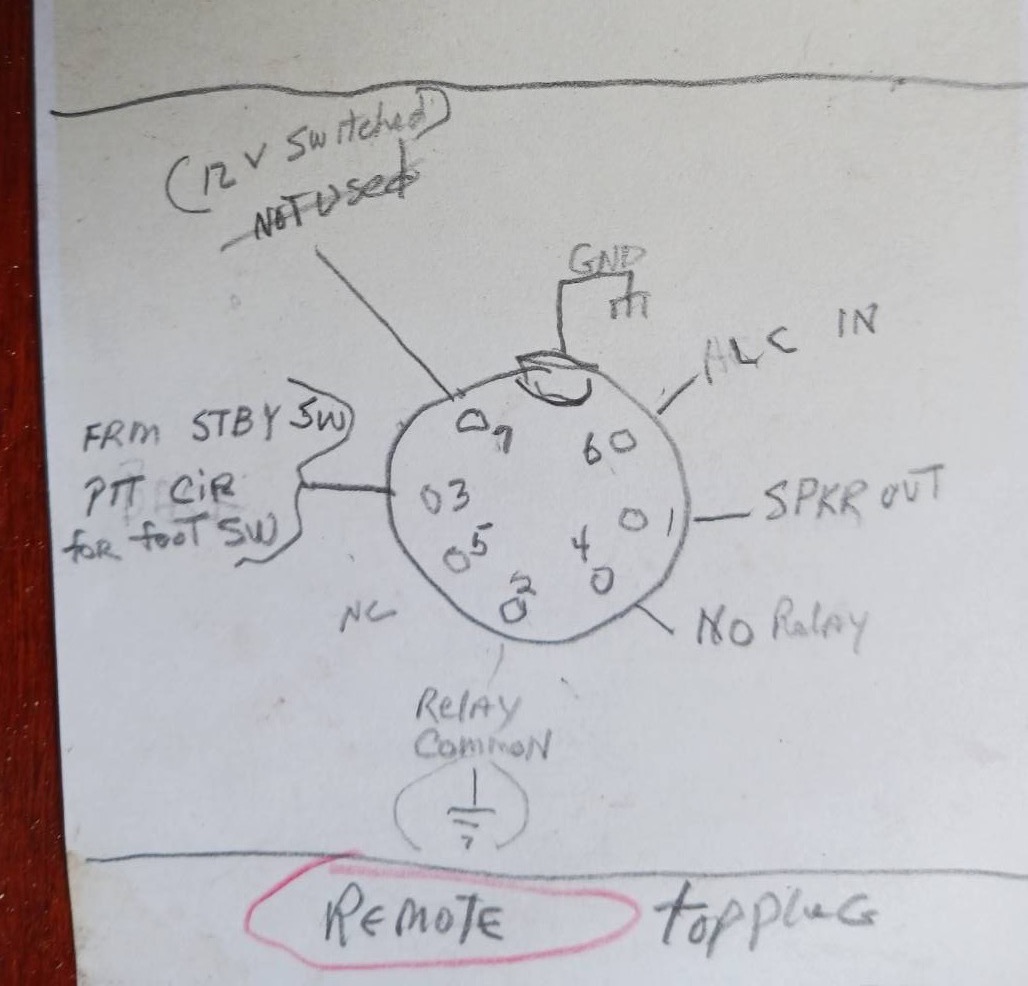 (12 V Switched)
NOT Used
GND
ALC IN
FRM STBY SW
PTT CiR
foR fooT SW
7
6
3
SPKR OUT
1
5
4
2
NC
NO Relay
Relay
Common
REMOTE
top plug